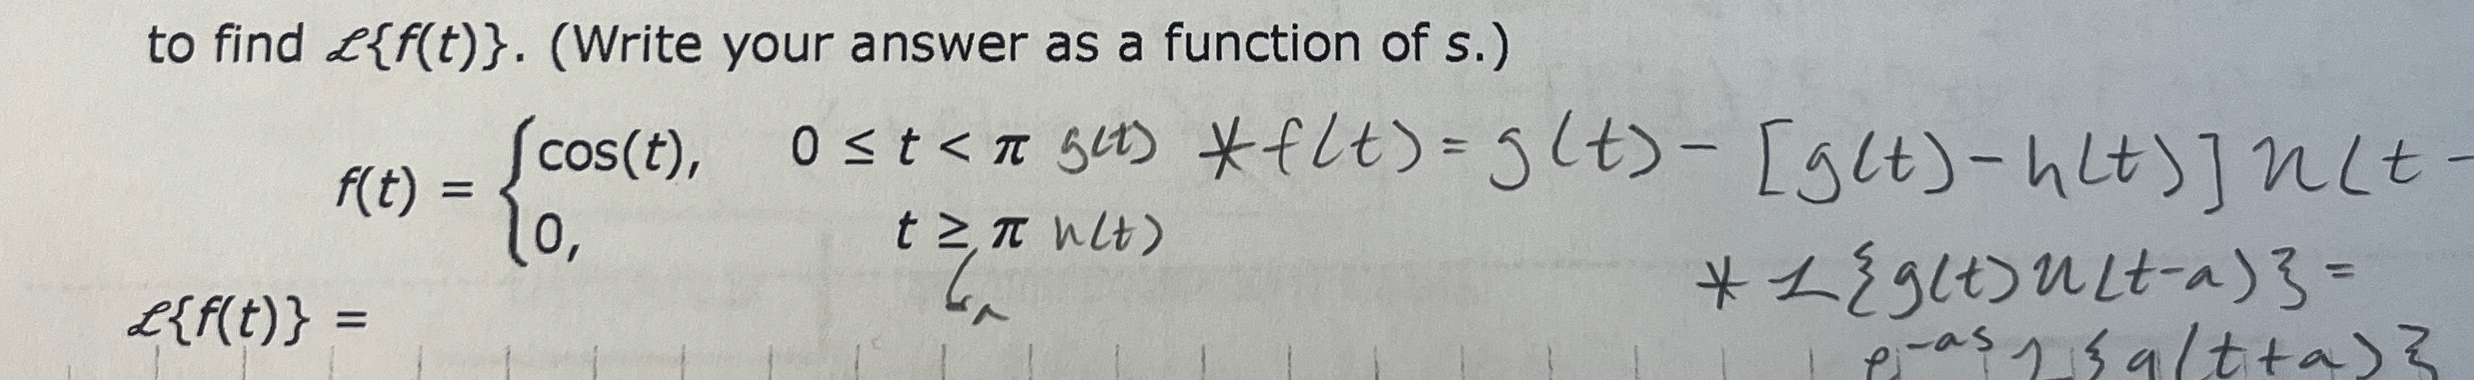 to find ℒ{f(t)}. (Write your answer as a function of s.)
f(t) = { cos(t), 0 ≤ t < π g(t) * f(t) = g(t) - [g(t) - h(t)] u(t -
0, t ≥ π h(t)
a
* ℒ{g(t) u(t-a)} =
ℒ{f(t)} =
e^-as ℒ{g(t+a)}